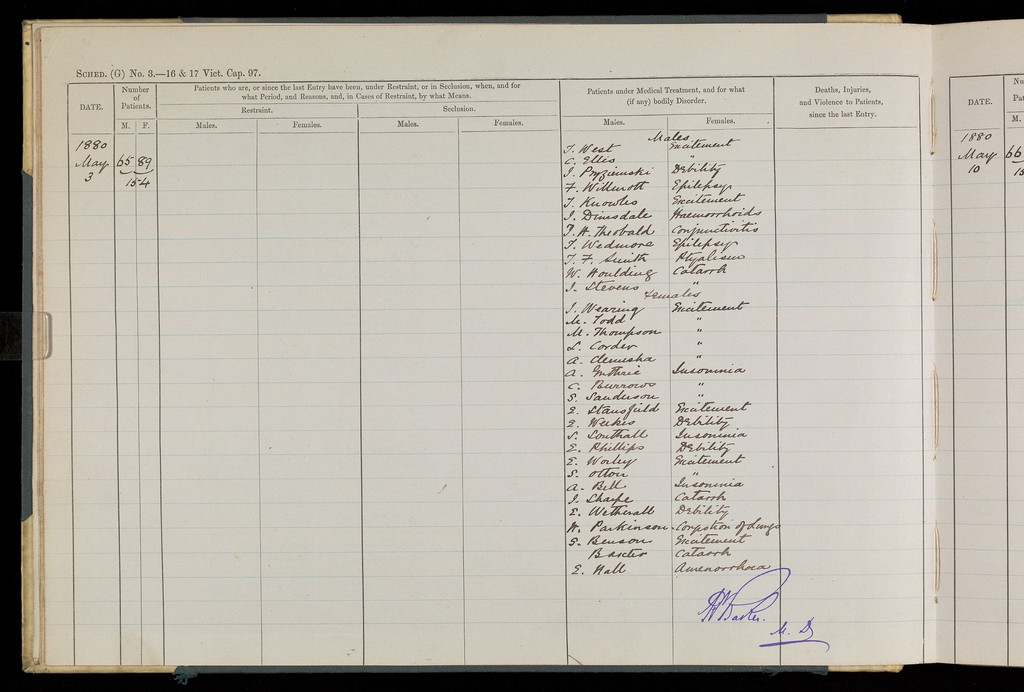 SCHED. (G) No. 3.—16 & 17 Vict. Cap. 97.
DATE.
Number of Patients.
M. F.
Patients who are, or since the last Entry have been, under Restraint, or in Seclusion, when, and for
what Period, and Reasons, and, in Cases of Restraint, by what Means.
Restraint. Seclusion.
Males. Females. Males. Females.
Patients under Medical Treatment, and for what
(if any) bodily Disorder.
Males. Females.
Deaths, Injuries,
and Violence to Patients,
since the last Entry.
1880
May 65 89
3 154
Males
T. West Excitement
C. Ellis "
Debility
F. Willmott Epilepsy
T. Knowles Excitement
J. Dimsdale Haemorrhoids
T. H. Theobald Conjunctivitis
T. Wedmore Epilepsy
T. F. Smith Ptyalism
W. Houlding Catarrh
J. Stevens "
Females
J. Wearing Excitement
M. Todd "
M. Thompson "
L. Corder "
A. Clemesha "
A. Guthrie Insomnia
C. Burrows "
S. Sanderson "
E. Stansfield Excitement
E. Weekes Debility
S. Southall Insomnia
E. Phillips Debility
E. Worley Excitement
S. Otton "
A. Bell Insomnia
J. Sharpe Catarrh
E. Wetherall Debility
H. Parkinson Congestion of Lungs
S. Benson Excitement
Baxter Catarrh
E. Hall Amenorrhoea
M. D.
DATE.
Nu
Pat
M.
1880
May 66
10 15